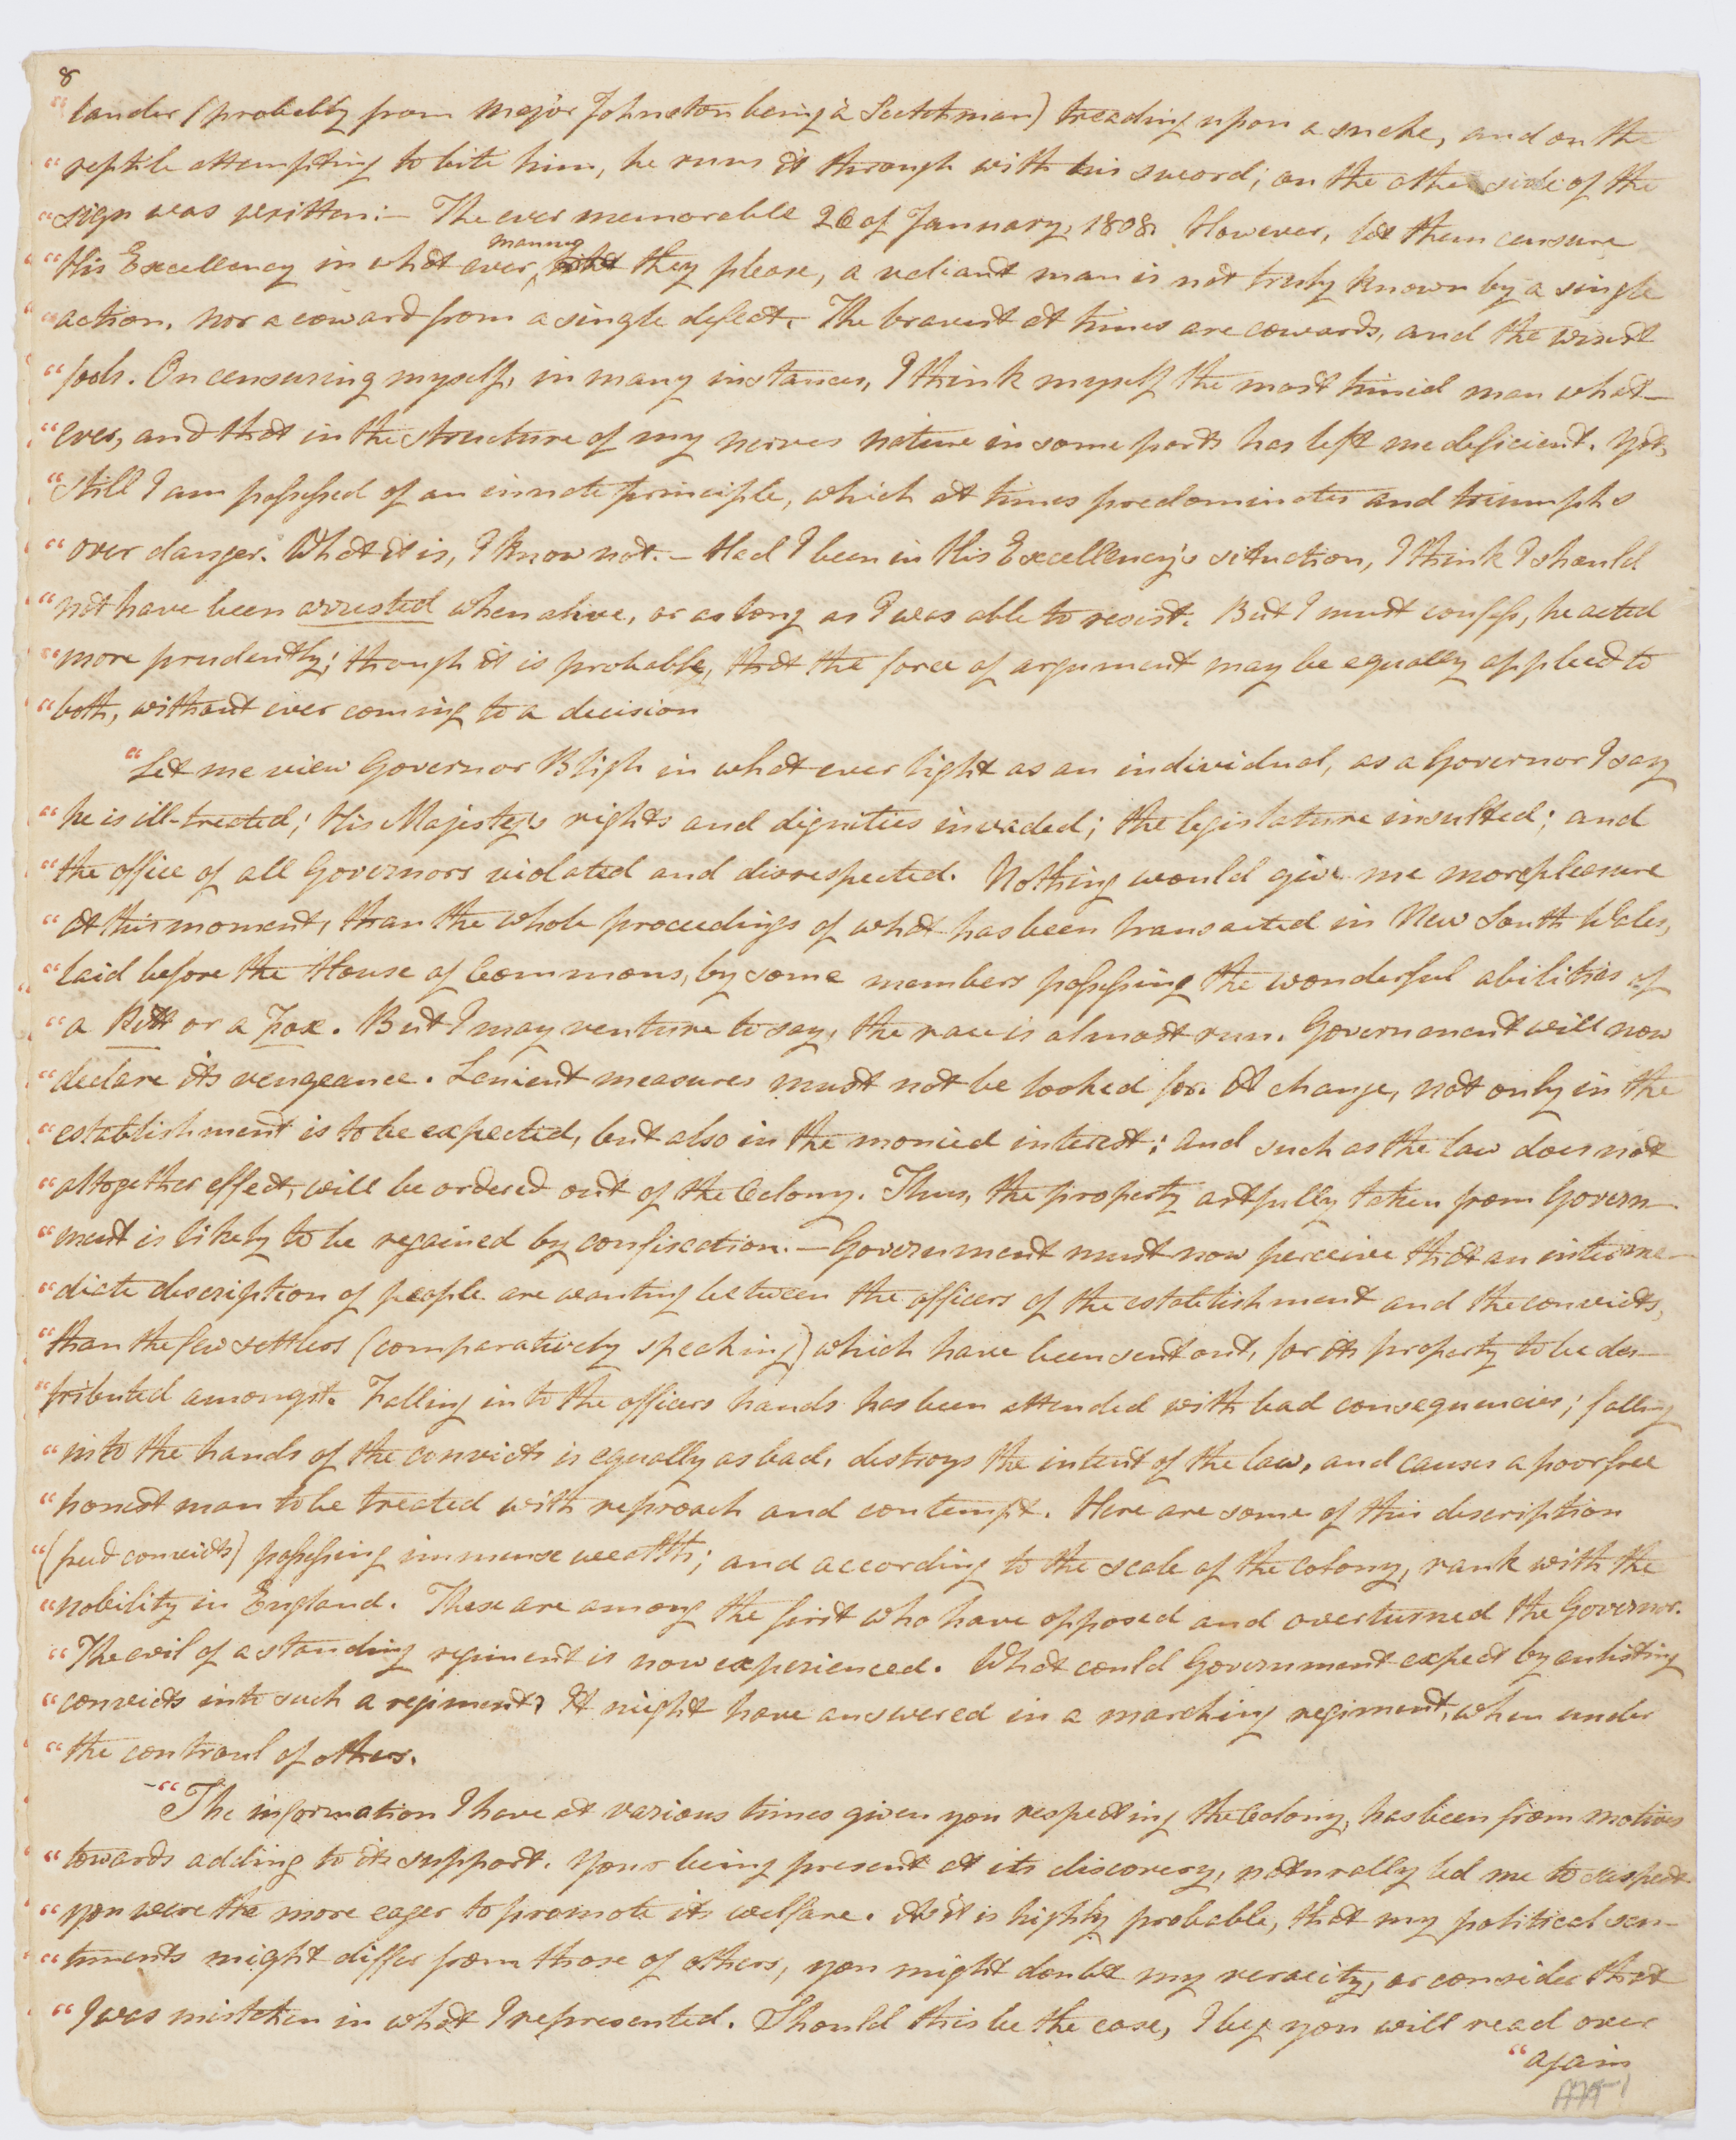 8
“lander (probably from Major Johnston being a Scotchman) treading upon a snake, and on the
“reptile attempting to bite him, he runs it through with his sword; on the other side of the
“sign was written:— The ever memorable 26 of January, 1808. However, let them censure
“His Excellency in what ever manner they please, a valiant man is not truly known by a single
“action, nor a coward from a single defect. The bravest at times are cowards, and the wisest
“fools. On censuring myself, in many instances, I think myself the most timid man what—
“ever, and that in the structure of my nerves nature in some parts has left me deficient. Yet,
“still I am possessed of an innate principle, which at times predominates and triumphs
“over danger. What it is, I know not.— Had I been in His Excellency's situation, I think I should
“not have been arrested when alive, or as long as I was able to resist. But I must confess, he acted
“more prudently; though it is probable, that the force of argument may be equally applied to
“both, without ever coming to a decision
“Let me view Governor Bligh in what ever light as an individual, as a Governor I say
“he is ill-treated; His Majesty's rights and dignities invaded; the legislature insulted; and
“the office of all Governors violated and disrespected. Nothing would give me more pleasure
“at this moment, than the whole proceedings of what has been transacted in New South Wales,
“laid before the House of Commons, by some members possessing the wonderful abilities of
“a Pitt or a Fox. But I may venture to say, the race is almost run. Government will now
“declare its vengeance. Lenient measures must not be looked for. A change, not only in the
“establishment is to be expected, but also in the monied interest: and such as the law does not
“altogether effect, will be ordered out of the Colony. Thus, the property artfully taken from Govern—
“ment is likely to be regained by confiscation.— Government must now perceive that an interme—
“diate description of people are wanting between the officers of the establishment and the convicts,
“than the few settlers (comparatively speaking) which have been sent out, for its property to be des—
“tributed amongst. Falling into the officers hands has been attended with bad consequencies; falling
“into the hands of the convicts is equally as bad, destroys the intent of the law, and causes a poor free
“honest man to be treated with reproach and contempt. Here are some of this description
“(freed convicts) possessing immense wealth; and according to the scale of the Colony, rank with the
“nobility in England. These are among the first who have opposed and overturned the Governor.
“The evil of a standing regiment is now experienced. What could Government expect by enlisting
“convicts into such a regiment? It might have answered in a marching regiment, when under
“the controul of others.
—“The information I have at various times given you respecting the Colony, has been from motives
“towards adding to its support. Your being present at its discovery, naturally led me to suspect
“you were the more eager to promote its welfare. As it is highly probable, that my political sen—
“timents might differ from those of others, you might doubt my veracity, or consider that
“I was mistaken in what I represented. Should this be the case, I beg you will read over
“again